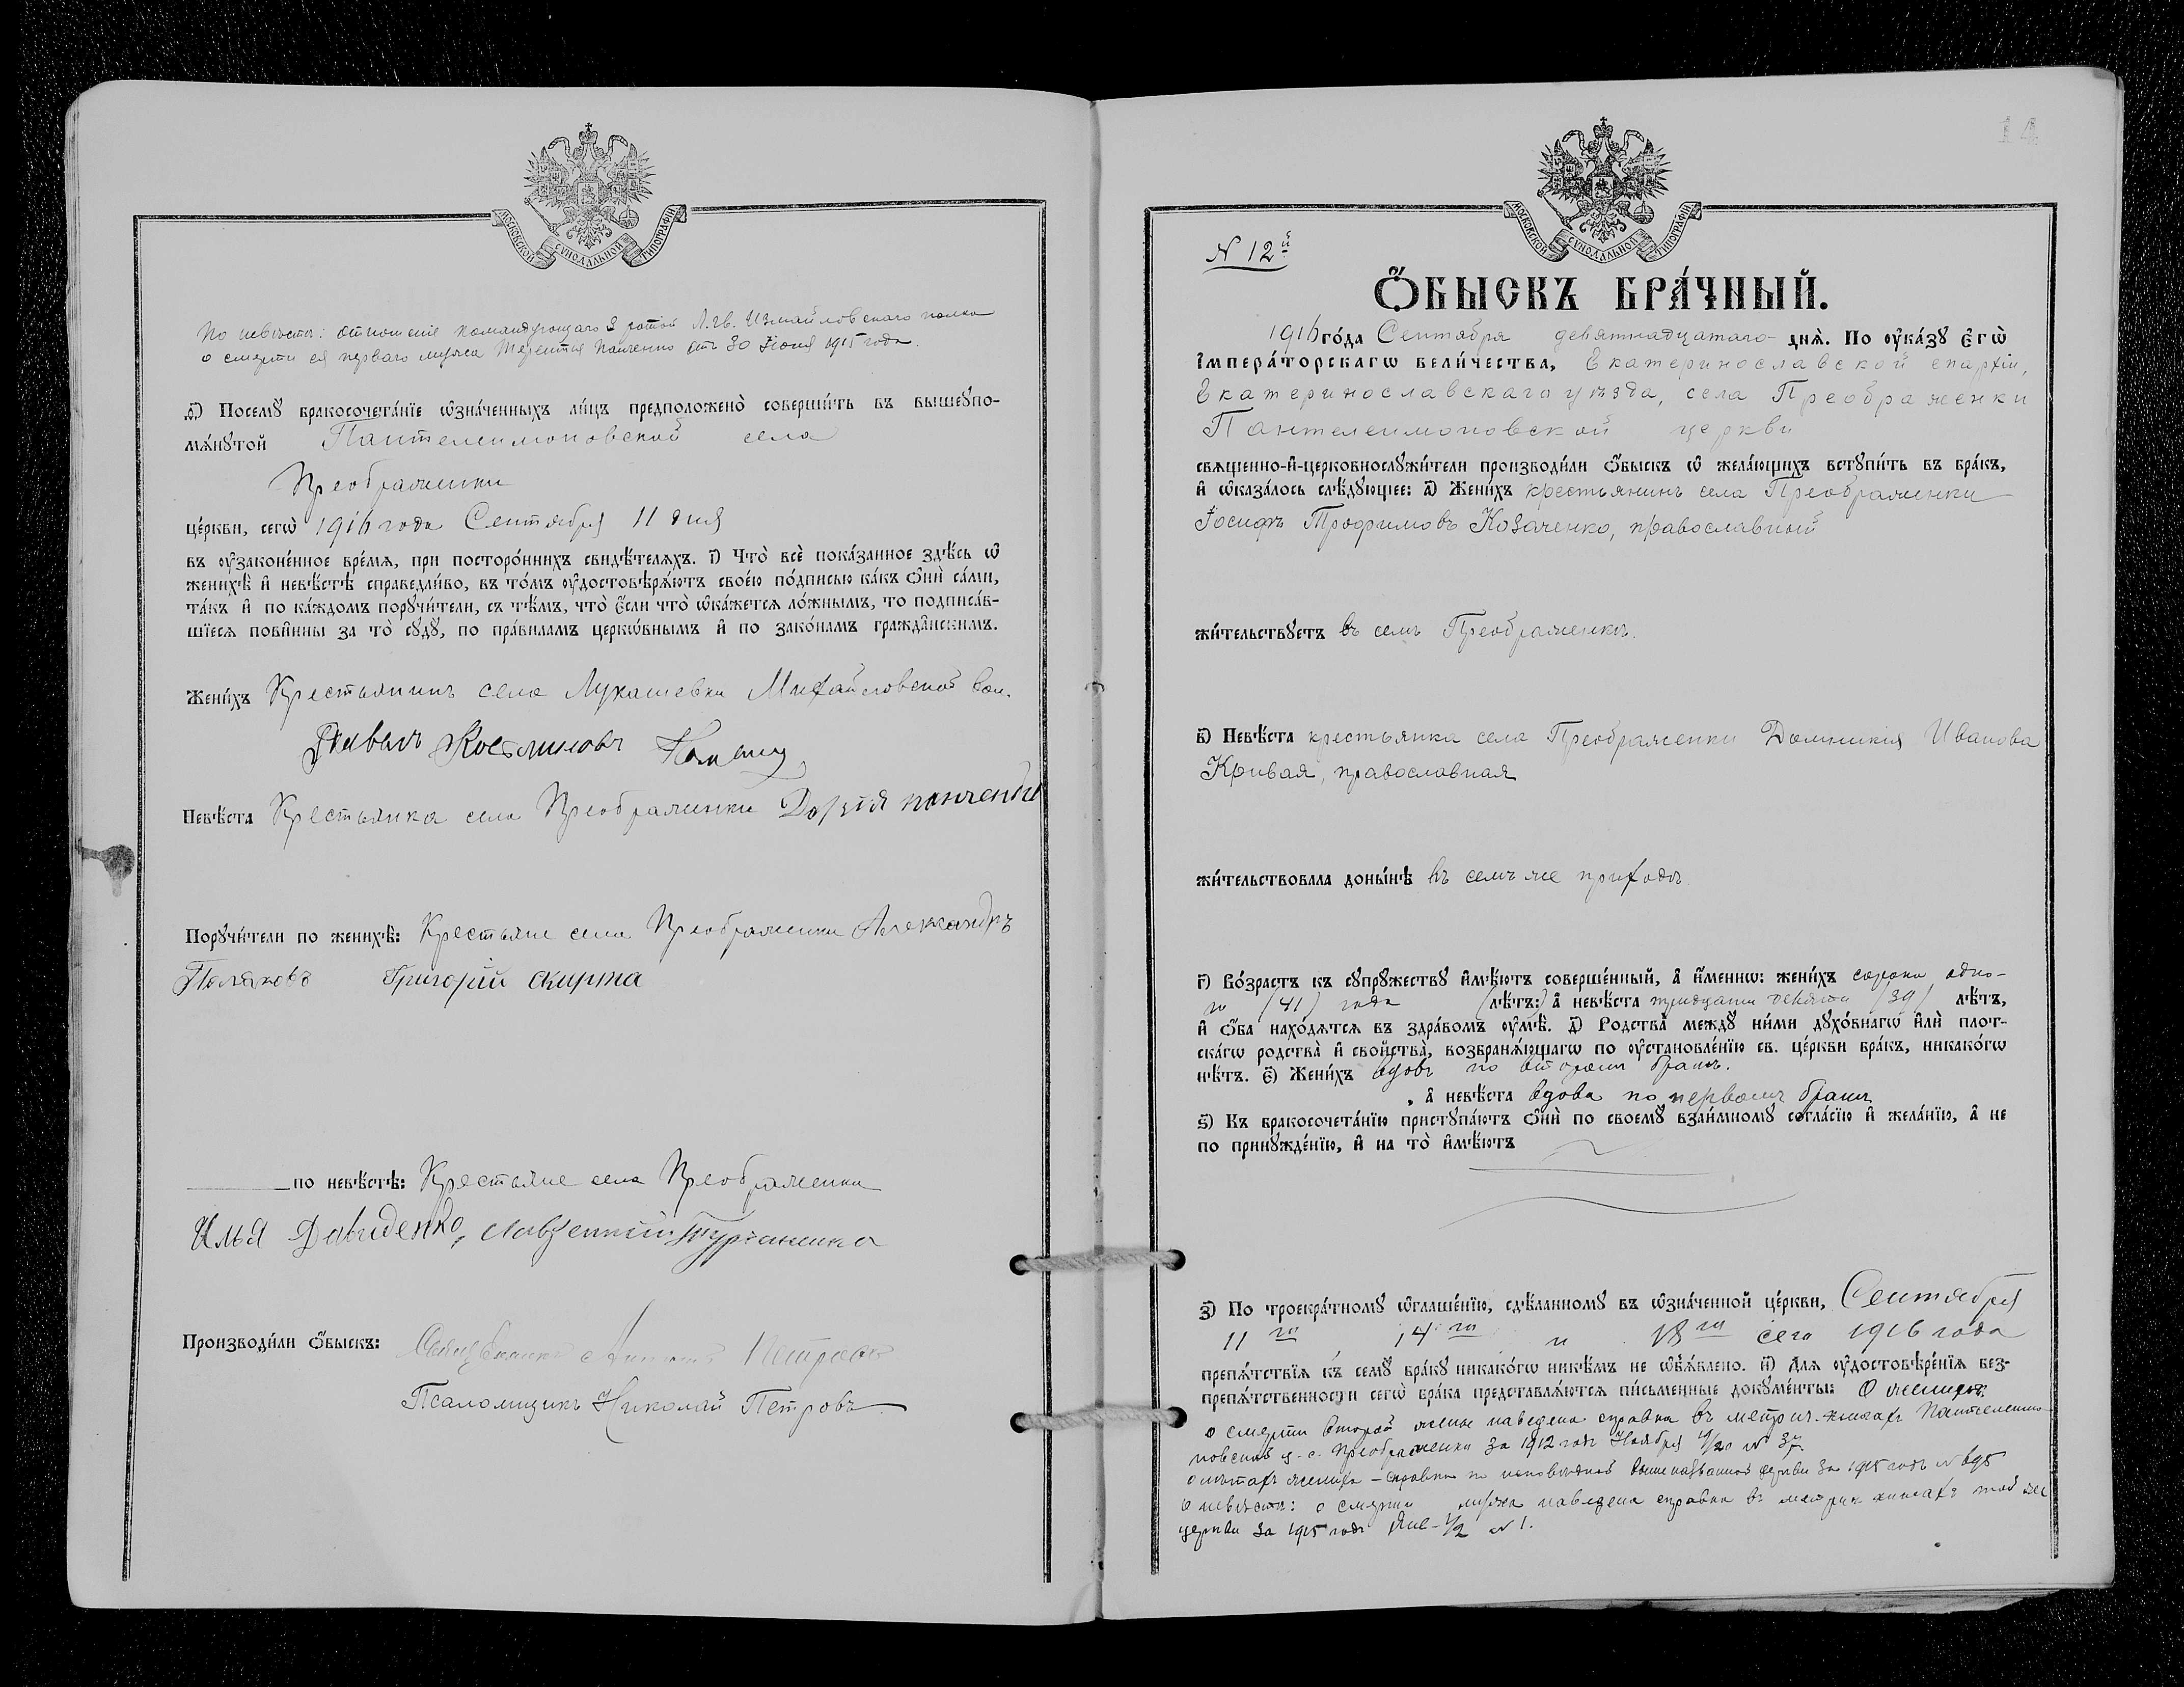 МОСКОВСКОЙ СѴНОДАЛЬНОЙ ТИПОГРАФІИ
По невѣстѣ: отношеніе командующаго 3 ротой Л. Гв. Измайловскаго полка
о смерти ея перваго мужа Терентія Панченко отъ 30 Іюня 1915 года.
д҃і) Посемꙋ̀ бракосочета́нїе ѡ҆зна́ченныхъ ли́цъ предположено̀ соверши́ть въ вышеꙋпо-
мѧ́нꙋтой Пантелеимоновской села
Преображенки
це́ркви, сегѡ̀ 1916 года Сентября 11 дня
въ оу҆законе́нное вре́мѧ, при посторо́ннихъ свидѣ́телѧхъ. і҃) Что̀ всѐ пока́занное здѣ́сь ѡ҆
женихѣ̀ и҆ невѣ́стѣ справедли́во, въ то́мъ оу҆достовѣрѧ́ютъ свое́ю по́дписью ка́къ ѻ҆нѝ са́ми,
та́къ и҆ по ка́ждомъ порꙋчи́тели, съ тѣ́мъ, что̀ є҆́сли что̀ ѡ҆ка́жетсѧ ло́жнымъ, то подписа́в-
шїесѧ пови́нны за то̀ сꙋдꙋ̀, по пра́виламъ церко́внымъ и҆ по зако́намъ гражда́нскимъ.
Жени́хъ Крестьянинъ села Лукашевки Михайловской вол.
Павелъ Косминовъ
Невѣ́ста Крестьянка села Преображенки Дарія Панченко
Порꙋчи́тели по женихѣ̀: Крестьяне села Преображенки Александръ
Поляковъ Григорій Скирта
по невѣ́стѣ: Крестьяне села Преображенки
Илья Давиденко, Лаврентій
Производи́ли ѻ҆́быскъ: Священникъ Петровъ
Псаломщикъ Николай Петровъ
14
МОСКОВСКОЙ СѴНОДАЛЬНОЙ ТИПОГРАФІИ
N 12й
Ѻ҆́БЫСКЪ БРА́ЧНЫЙ.
1916 го́да Сентября девятнадцатаго днѧ̀. По оу҆ка́зꙋ Є҆гѡ̀
І҆мпера́торскагѡ вели́чества, Екатеринославской епархіи,
Екатеринославскаго уѣзда, села Преображенки
Пантелеимоновской церкви
свѧщенно-и҆-церковнослꙋжи́тели производи́ли ѻ҆́быскъ ѡ҆ жела́ющихъ встꙋпи́ть въ бра́къ,
и҆ ѡ҆каза́лось слѣ́дꙋющее: а҃) Жени́хъ крестьянинъ села Преображенки
Іосифъ Трофимовъ Козаченко, православный
жи́тельствꙋетъ въ селѣ Преображенкѣ.
в҃) Невѣ́ста крестьянка села Преображенки Домникія Иванова
Кривая, православная
жи́тельствовала доны́нѣ въ семъ же приходѣ
г҃) Во́зрастъ къ сꙋпрꙋ́жествꙋ и҆мѣ́ютъ соверше́нный, а҆ и҆́меннѡ: жени́хъ сорока одно-
го (41) года (лѣ́тъ:) а҆ невѣ́ста тридцати девяти (39) лѣ́тъ,
и҆ ѻ҆́ба нахо́дѧтсѧ въ здра́вомъ оу҆мѣ̀. д҃) Родства̀ междꙋ̀ ни́ми дꙋхо́внагѡ и҆лѝ плот-
ска́гѡ родства̀ и҆ свойства̀, возбранѧ́ющагѡ по оу҆становле́нїю св. це́ркви бра́къ, никако́гѡ
нѣ́тъ. є҃) Жени́хъ вдовъ по второмъ бракѣ.
, а҆ невѣ́ста вдова по первомъ бракѣ
ѕ҃) Къ бракосочета́нїю пристꙋпа́ютъ ѻ҆нѝ по своемꙋ̀ взаи́мномꙋ согла́сїю и҆ жела́нїю, а҆ не
по принꙋжде́нїю, и҆ на то̀ и҆мѣ́ютъ
з҃) По троекра́тномꙋ ѡ҆глаше́нїю, сдѣ́ланномꙋ въ ѡ҆зна́ченной це́ркви, Сентября
11го 14го и 18го сего 1916 года
препѧ́тствїѧ къ семꙋ̀ бра́кꙋ никако́гѡ никѣ́мъ не ѡ҆б̾ѧ́влено. и҃) Длѧ оу҆достовѣре́нїѧ без-
препѧ́тственности сегѡ̀ бра́ка представлѧ́ютсѧ пи́сьменные докꙋме́нты: О женихѣ:
о смерти второй жены наведена справка въ метрич. книгахъ Пантелеимо-
новской ц. с. Преображенки за 1912 годъ Ноября № 37
о лѣтахъ жениха – справка по исповѣдной вышеназванной церкви за 1915 годъ №
О невѣстѣ: о смерти мужа наведена справка въ метрич. книгахъ той же
церкви за 1915 годъ Янв. ½ № 1.